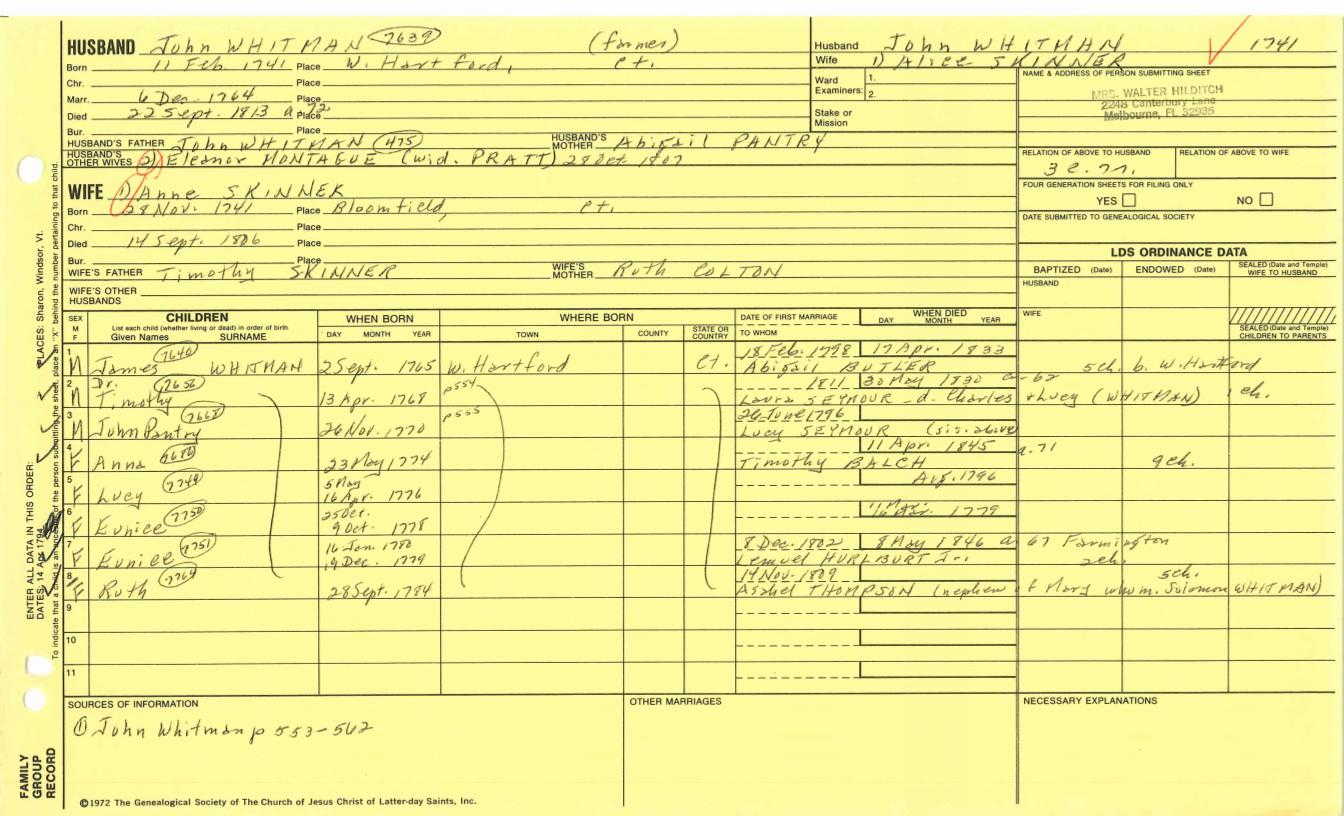 HUSBAND John WHITMAN 7639 (farmer)
Born 11 Feb. 1741 Place W. Hartford, Ct.
Chr. Place
Marr. 6 Dec. 1764 Place
Died 22 Sept. 1813 a 72. Place
Bur. Place
HUSBAND'S FATHER John WHITMAN (475) HUSBAND'S MOTHER Abigail PANTRY
HUSBAND'S OTHER WIVES (2) Eleanor MONTAGUE (wid. PRATT) 28 Oct. 1807
WIFE 1) Anne SKINNER
Born 28 Nov. 1741 Place Bloomfield, Ct.
Chr. Place
Died 14 Sept. 1806 Place
Bur. Place
WIFE'S FATHER Timothy SKINNER WIFE'S MOTHER Ruth COLTON
WIFE'S OTHER HUSBANDS
Husband John WHITMAN 1741
Wife 1) Alice SKINNER
Ward Examiners: 1.
2.
Stake or Mission
NAME & ADDRESS OF PERSON SUBMITTING SHEET
MRS. WALTER HILDITCH
2248 Canterbury Lane
Melbourne, FL 32935
RELATION OF ABOVE TO HUSBAND RELATION OF ABOVE TO WIFE
3 c.
FOUR GENERATION SHEETS FOR FILING ONLY
YES NO
DATE SUBMITTED TO GENEALOGICAL SOCIETY
LDS ORDINANCE DATA
BAPTIZED (Date) ENDOWED (Date) SEALED (Date and Temple) WIFE TO HUSBAND
HUSBAND
WIFE
SEALED (Date and Temple) CHILDREN TO PARENTS
SEX M F CHILDREN List each child (whether living or dead) in order of birth Given Names SURNAME
WHEN BORN DAY MONTH YEAR
WHERE BORN TOWN COUNTY STATE OR COUNTRY
DATE OF FIRST MARRIAGE TO WHOM
WHEN DIED DAY MONTH YEAR
1 M James 7640 WHITMAN 2 Sept. 1765 W. Hartford Ct. 18 Feb. 1798 17 Apr. 1833
Abigail BUTLER 5ch. b. W. Hartford
2 M Dr. Timothy 7656 13 Apr. 1768 p554 1811 30 May 1830 a-62
Laura SEYMOUR d. Charles + Lucy (WHITMAN) 1 ch.
3 M John Pantry 7668 26 Nov. 1770 p555 26 June 1796
Lucy SEYMOUR (sis. above
4 F Anna 7686 23 May 1774 11 Apr. 1845 a.71
Timothy BALCH 9ch.
5 F Lucy 7749 5 May Aug. 1796
16 Apr. 1776
6 F Eunice 7750 25 Oct. 1779
9 Oct. 1778
7 F Eunice 7751 16 Jan. 1780 8 Dec. 1802 8 May 1846 a 67 Farmington
19 Dec. 1779 Lemuel HURLBURT Jr. 2ch.
8 F Ruth 7764 28 Sept. 1784 14 Nov. 1809 5ch.
Asahel THOMPSON (nephew of Mary who m. Solomon WHITMAN)
9
10
11
SOURCES OF INFORMATION
① John Whitman p 553-562
OTHER MARRIAGES
NECESSARY EXPLANATIONS
©1972 The Genealogical Society of The Church of Jesus Christ of Latter-day Saints, Inc.
FAMILY GROUP RECORD
ENTER ALL DATA IN THIS ORDER:
DATES: 14 Apr 1794 PLACES: Sharon, Windsor, Vt.
To indicate that a child is an ancestor of the person submitting the sheet, place an "X" behind the number pertaining to that child.